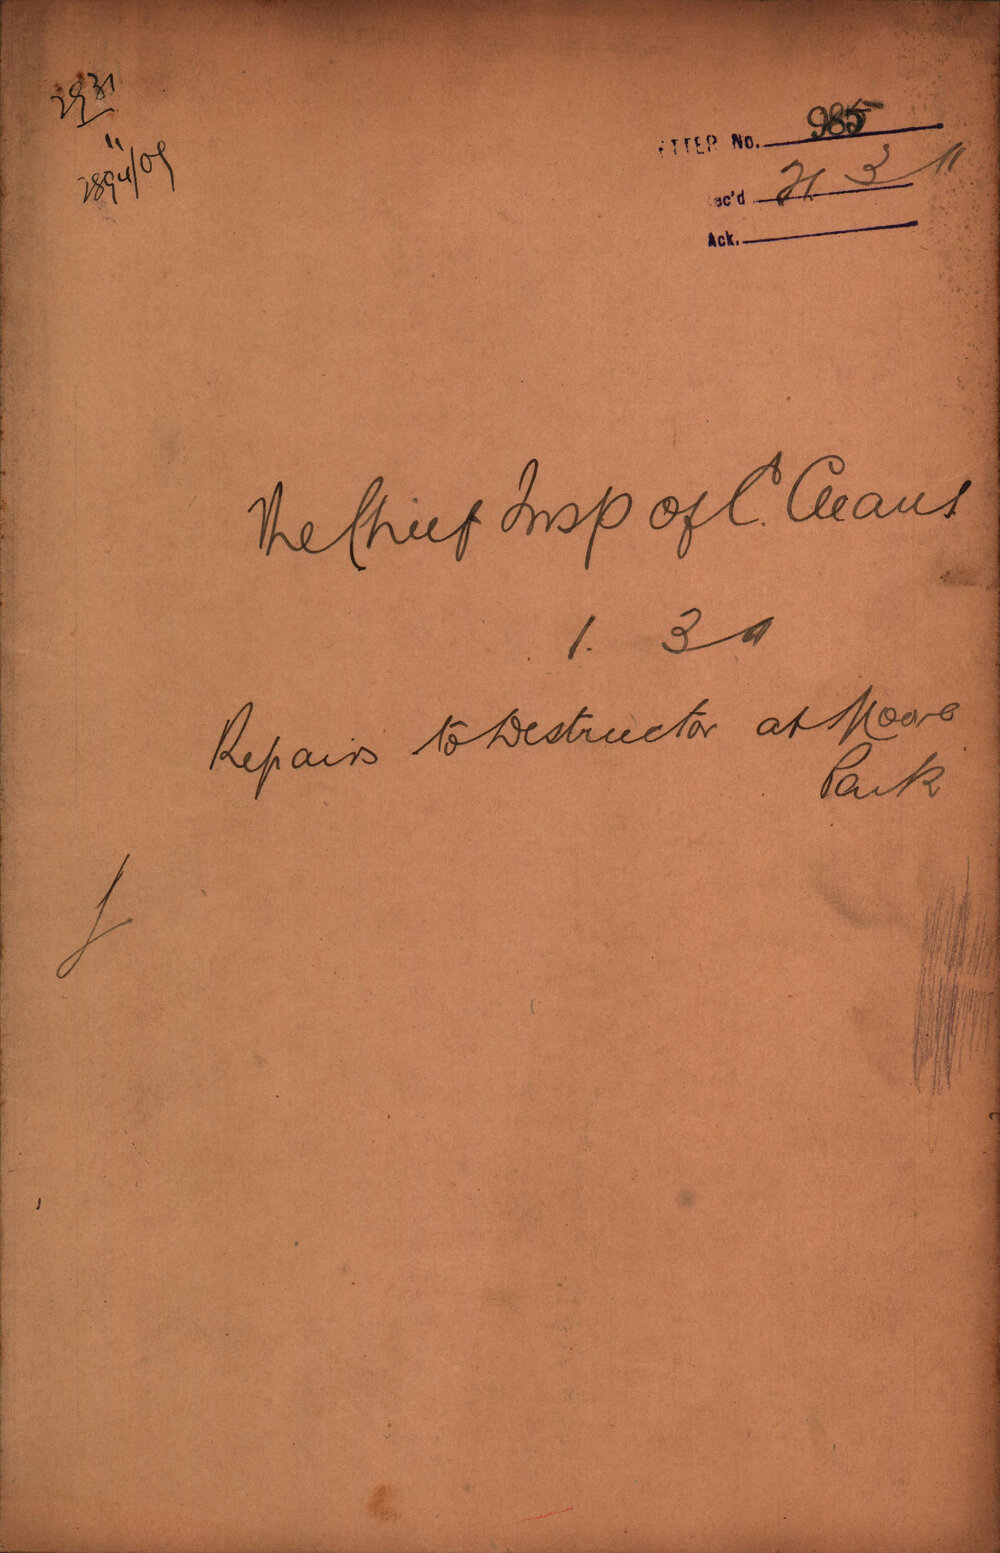 2931
11
2894/09
LETTER No. 985
Rec'd 21 3 11
Ack.
The Chief Insp of C. Cleans
1. 3 11
Repairs to Destructor at Moore
Park